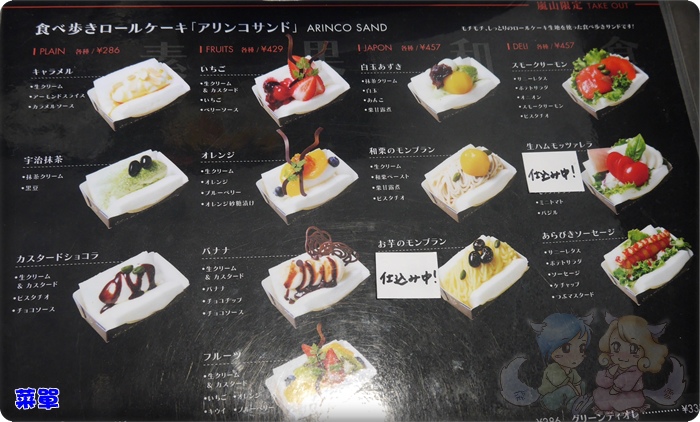 嵐山限定 TAKE OUT
食べ歩きロールケーキ「アリンコサンド」 ARINCO SAND
モチモチ、しっとりのロールケーキ生地を使った食べ歩きサンドです!
PLAIN 各種 / ¥286
キャラメル
・生クリーム
・アーモンドスライス
・カラメルソース
宇治抹茶
・抹茶クリーム
・黒豆
カスタードショコラ
・生クリーム
& カスタード
・ピスタチオ
・チョコソース
FRUITS 各種 / ¥429
いちご
・生クリーム
& カスタード
・いちご
・ベリーソース
オレンジ
・生クリーム
・オレンジ
・ブルーベリー
・オレンジ砂糖漬け
バナナ
・生クリーム
& カスタード
・バナナ
・チョコチップ
・チョコソース
フルーツ
・生クリーム
& カスタード
・いちご ・オレンジ
・キウイ ・ブルーベリー
JAPON 各種 / ¥457
白玉あずき
・抹茶クリーム
・白玉
・あんこ
・栗甘露煮
和栗のモンブラン
・生クリーム
・和栗ペースト
・栗甘露煮
・ピスタチオ
お芋のモンブラン
仕込み中!
DELI 各種 / ¥457
スモークサーモン
・サニーレタス
・ポテトサラダ
・オニオン
・スモークサーモン
・ピスタチオ
生ハムモッツァレラ
仕込み中!
・ミニトマト
・バジル
あらびきソーセージ
・サニーレタス
・ポテトサラダ
・ソーセージ
・ケチャップ
・つぶマスタード
¥286
グリーンティオレ
¥33
菜單